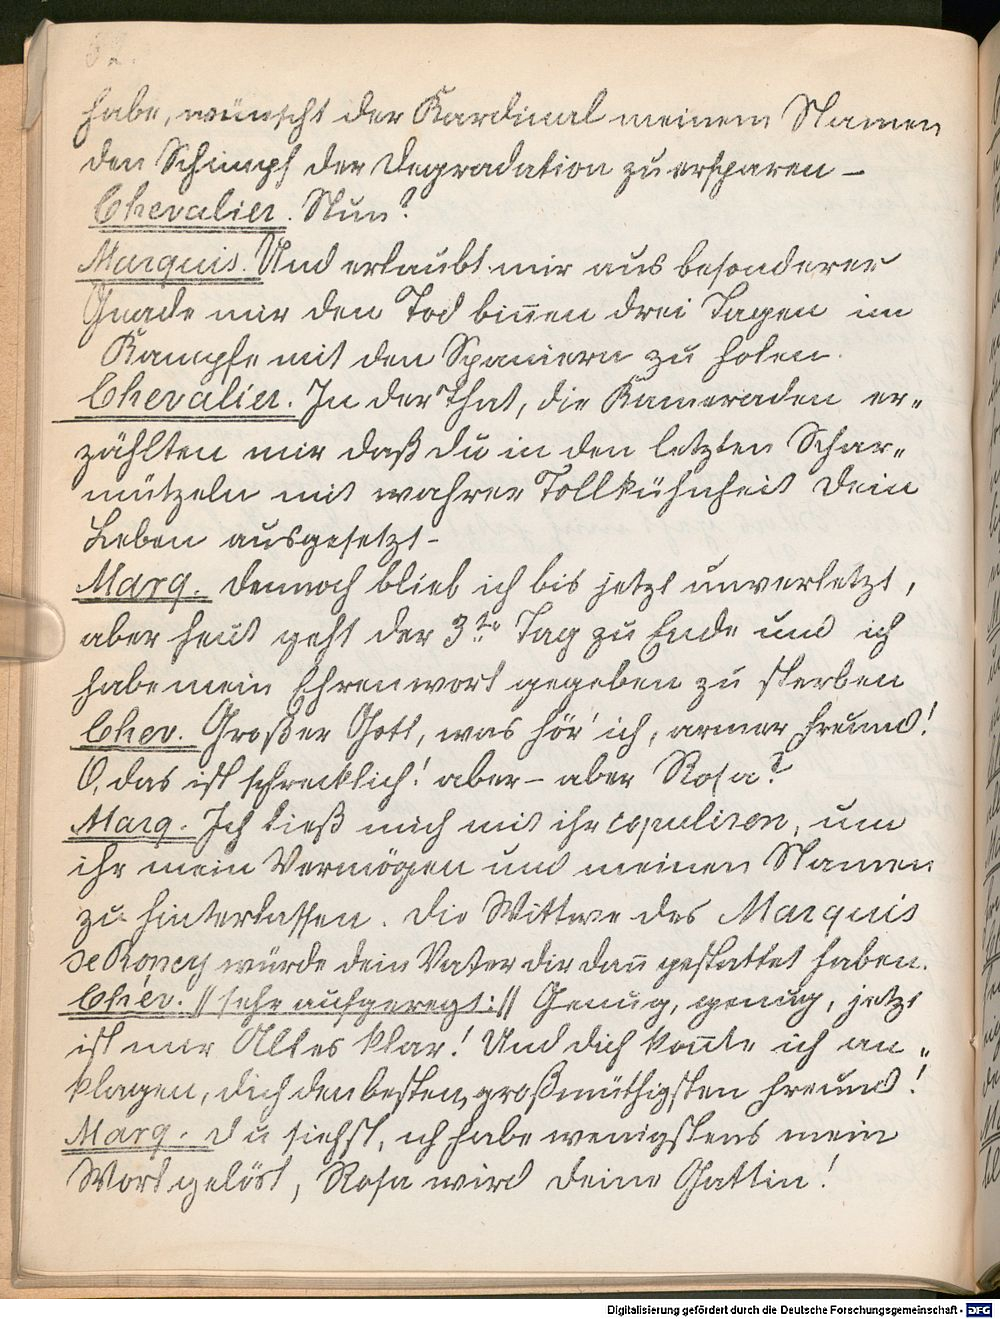 62.
habe, wünscht der Kardinal meinem Namen
den Schimpf der Degradation zu ersparen –
Chevalier. Nun?
Marquis. Und erlaubt mir aus besonderer
Gnade mir den Tod bin̄en drei Tagen im
Kampfe mit den Spaniern zu holen.
Chevalier. In der That, die Kameraden er„
zählten mir daß du in den letzten Schar„
mützeln mit wahrer Tollkühnheit Dein
Leben ausgesetzt –
Marq. Dennoch blieb ich bis jetzt unverletzt,
aber heut geht der 3te Tag zu Ende und ich
habe mein Ehrenwort gegeben zu sterben
Chev. Großer Gott, was hör' ich, armer Freund!
O, das ist schrecklich! aber – aber Rosa?
Marq. Ich ließ mich mit ihr copuliren, um
ihr mein Vermögen und meinen Namen
zu hinterlassen. Die Wittwe des Marquis
de Roncy würde dein Vater dir dan̄ gestattet haben.
Chev. // sehr aufgeregt: // Genug, genug, jetzt
ist mir Alles klar! Und dich kon̄te ich an„
klagen, dich den besten, großmüthigsten Freund!
Marq. Du siehst, ich habe wenigstens mein
Wort gelöst, Rosa wird Deine Gattin!
Digitalisierung gefördert durch die Deutsche Forschungsgemeinschaft - DFG